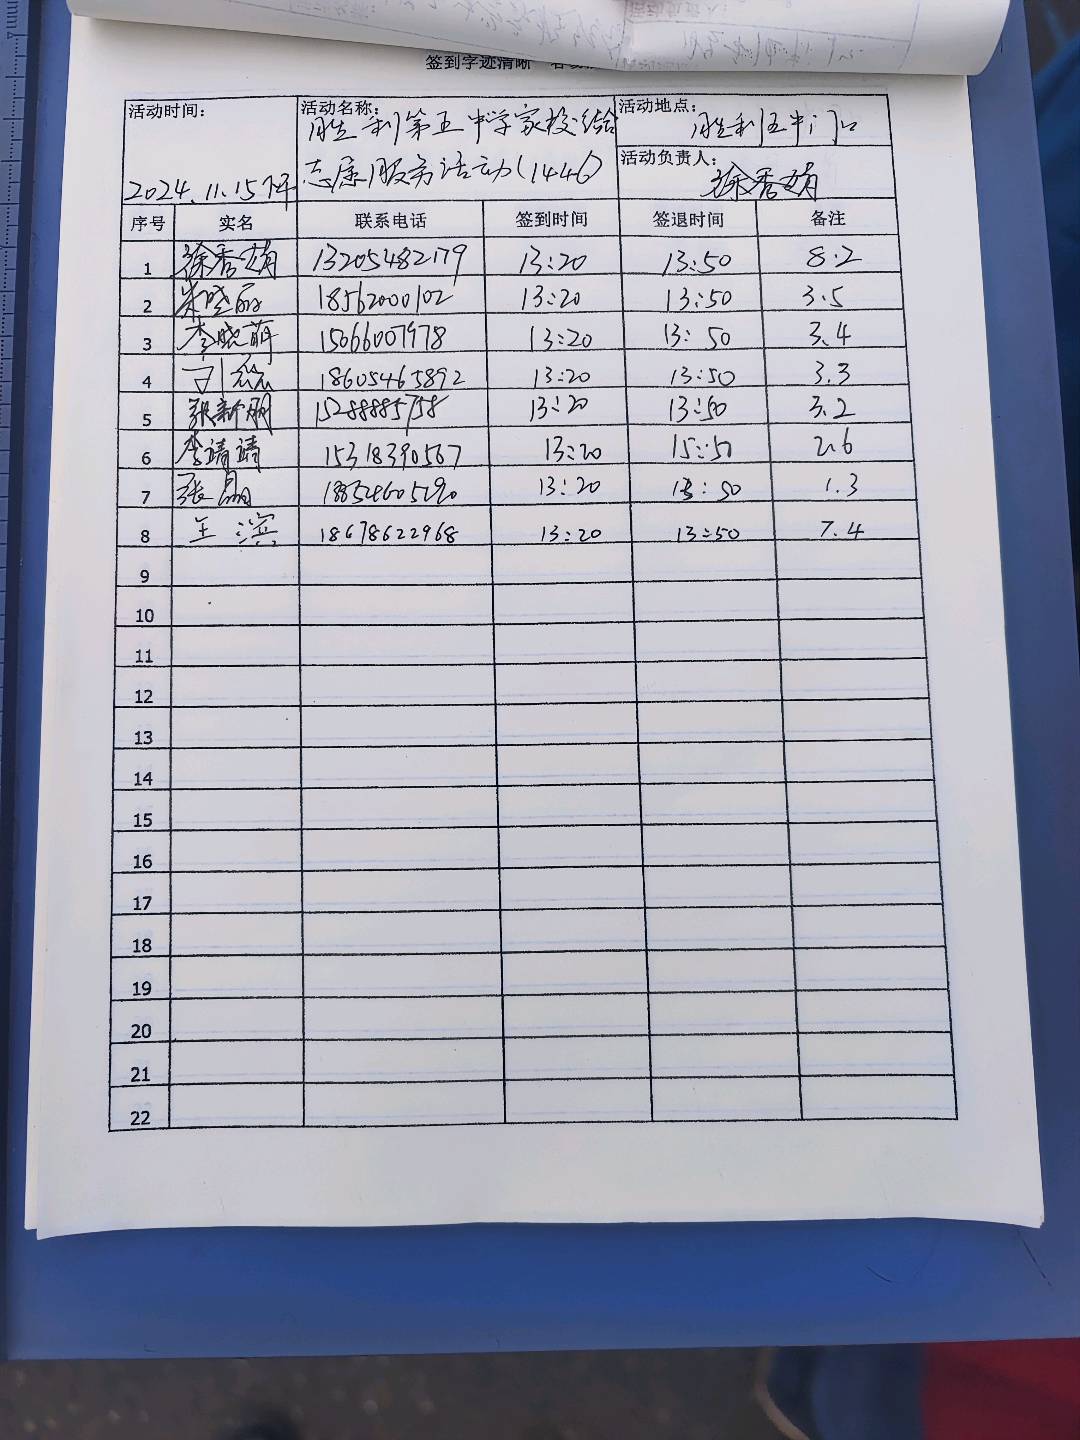 签到字迹清晰
活动时间：
2024.11.15下午
活动名称：
胜利第五中学家校
志愿服务活动（1446）
活动地点：
胜利五中门口
活动负责人：
徐秀娟
序号 实名 联系电话 签到时间 签退时间 备注
1 徐秀娟 13205482179 13:20 13:50 8.2
2 朱晓丽 18562000102 13:20 13:50 3.5
3 李晓萌 15066007978 13:20 13:50 3.4
4 刁磊 18605465892 13:20 13:50 3.3
5 张新丽 15288885758 13:20 13:50 3.2
6 李靖靖 15318390567 13:20 15:50 2.6
7 张晶 18854605290 13:20 13:50 1.3
8 王滨 18678622968 13:20 13:50 7.4
9
10
11
12
13
14
15
16
17
18
19
20
21
22